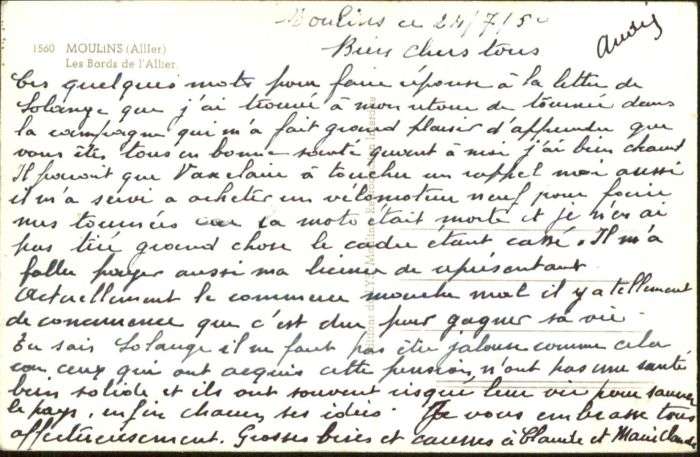 Moulins ce 24/7/50
1560 MOULINS (Allier)
Les Bords de l'Allier.
Bien chers tous
Ces quelques mots pour faire réponse à la lettre de
Solange que j'ai trouvé à mon retour de tournée dans
la campagne qui m'a fait grand plaisir d'apprendre que
vous êtes tous en bonne santé quant à moi j'ai bien chaud
Il parait que à toucher un rappel moi aussi
il m'a servi a acheter un vélomoteur neuf pour faire
mes tournées car la moto était morte et je n'en ai
pas tiré grand chose le cadre étant cassé. Il m'a
fallu payer aussi ma licence de représentant
Actuellement le commerce marche mal il y a tellement
de concurrence que c'est dur pour gagner sa vie
Tu sais Solange il ne faut pas être jalouse comme cela
car ceux qui ont acquis cette pension, n'ont pas une santé
bien solide et ils ont souvent risqué leur vie pour sauver
le pays, enfin chacun ses idées. Je vous embrasse tous
affectueusement. Grosses bises et caresses à Claude et Marie Claude